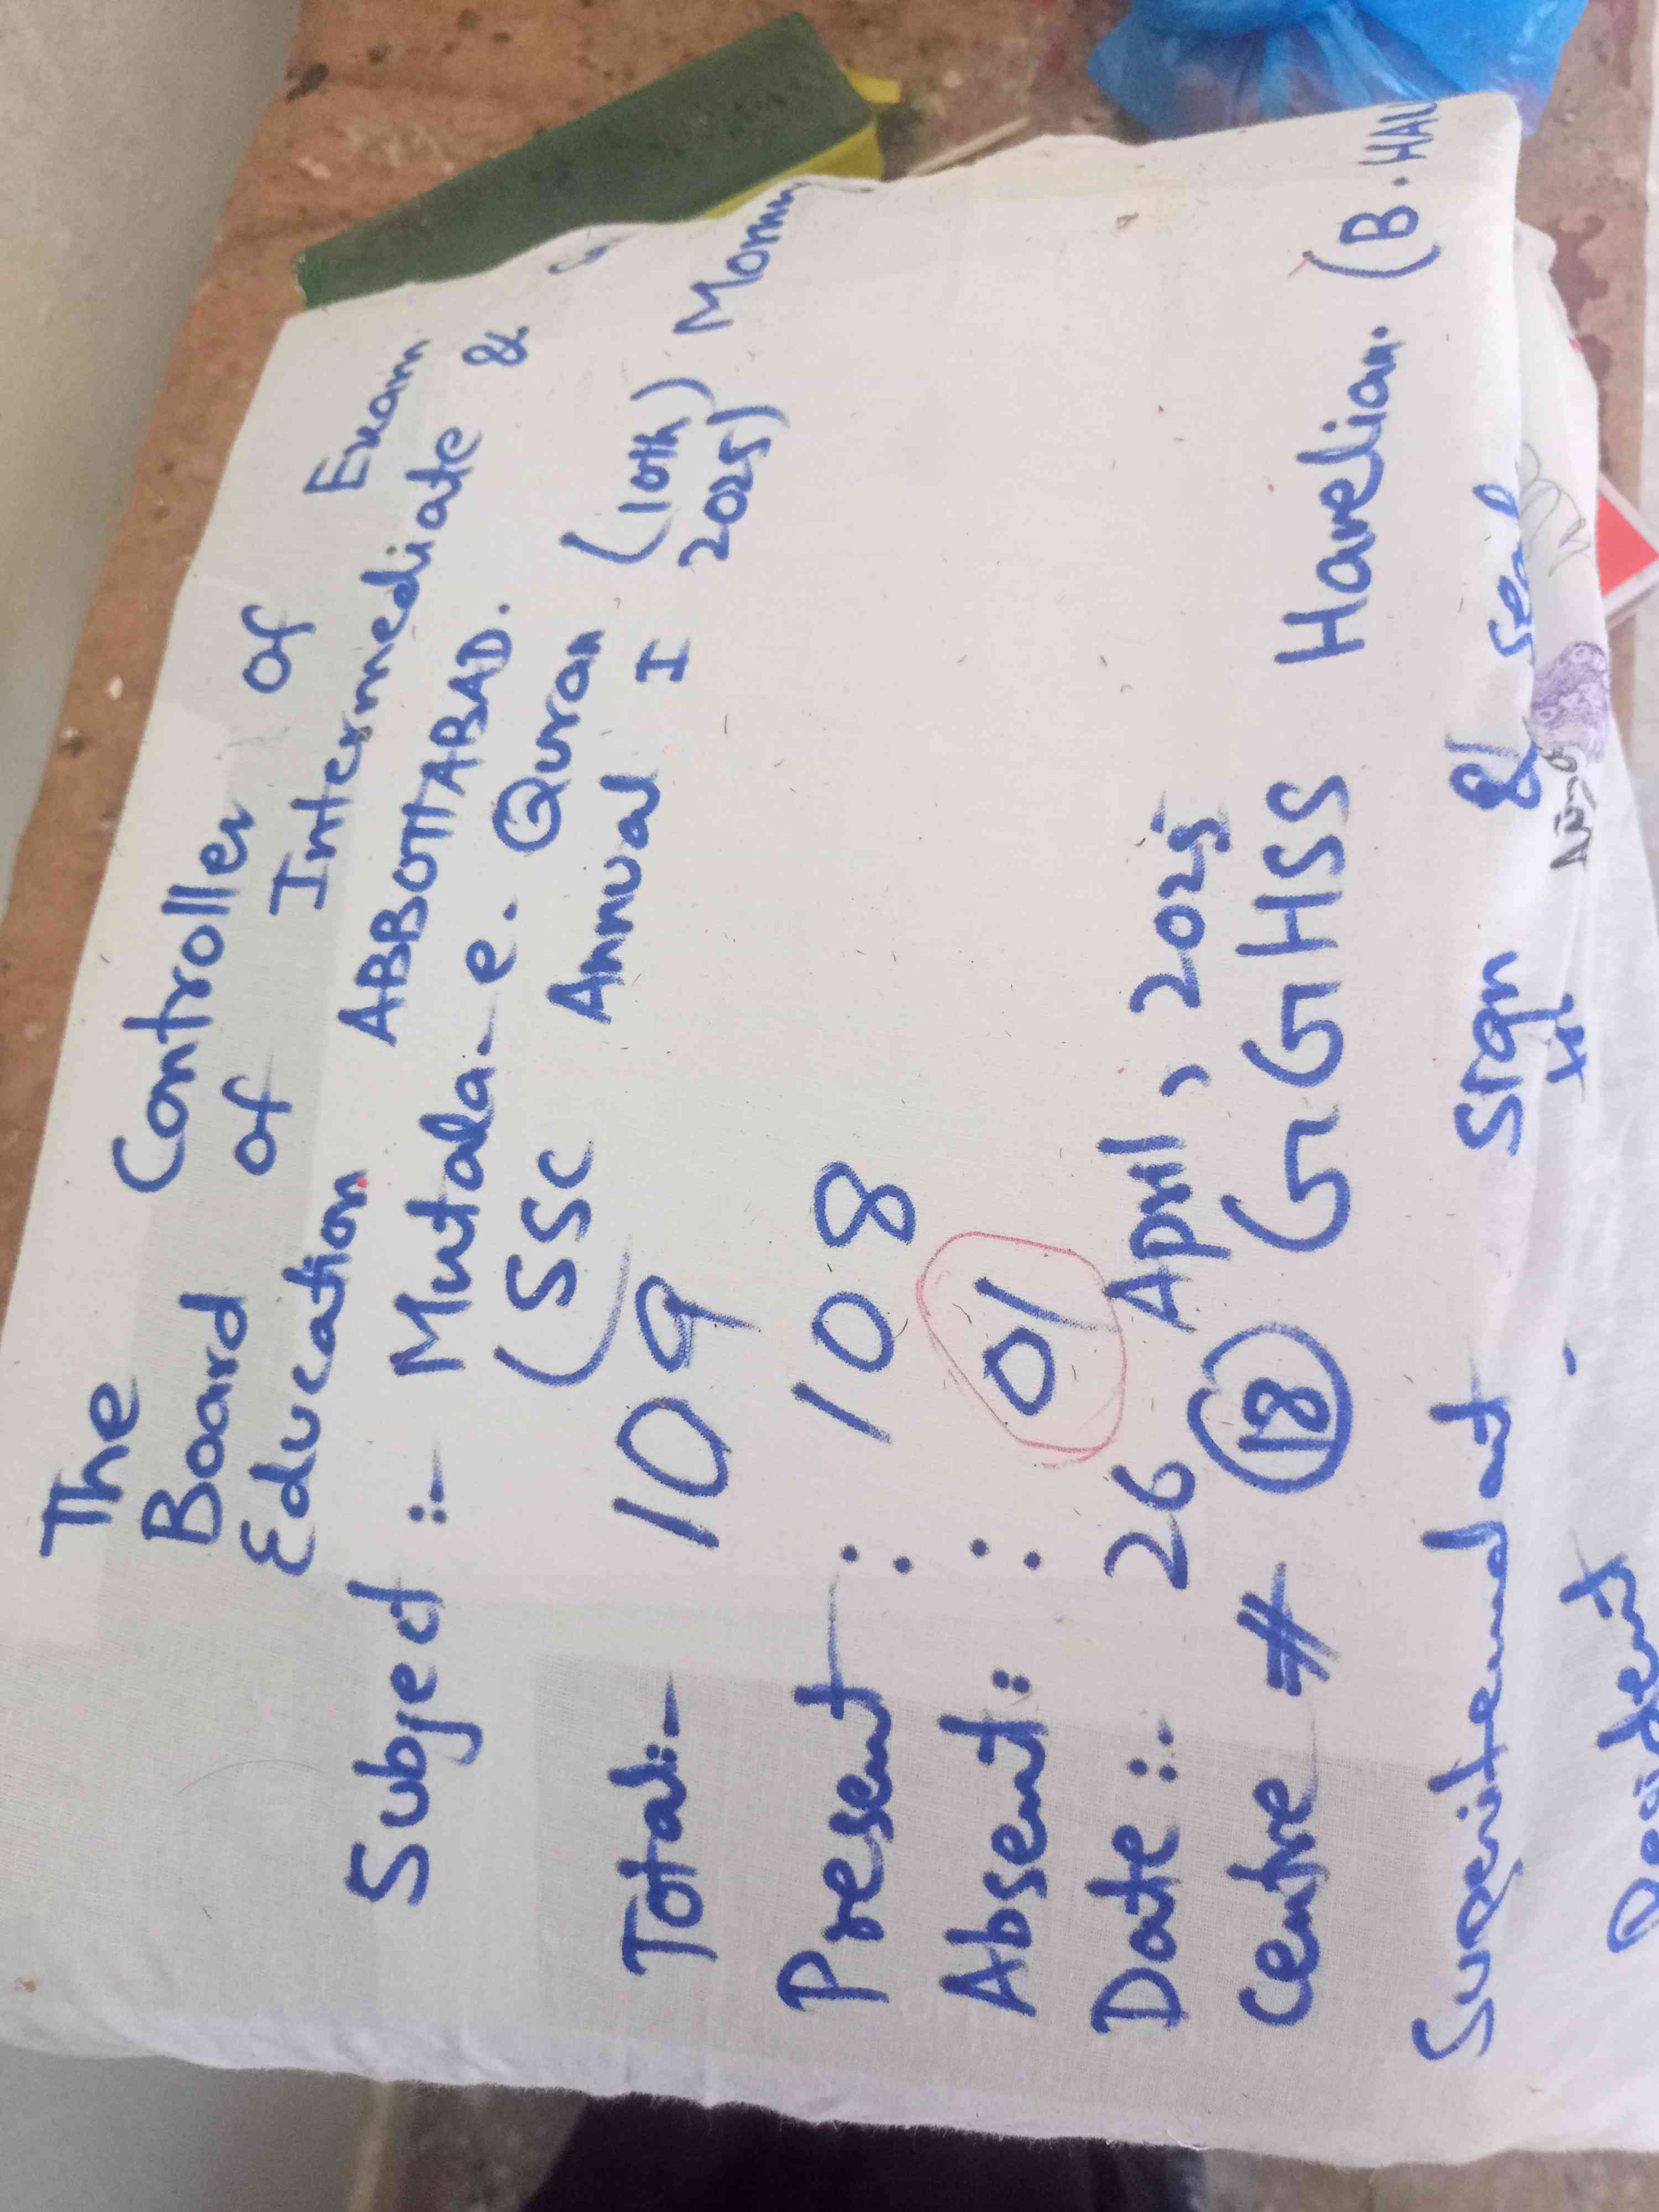 The Controller of Exam
Board of Intermediate &
Education ABBOTTABAD.
Subject :- Mutala-e. Quran
(SSC Annual I 2025)
(10th)
Total:- 109
Present : 108
Absent: : 01
Date :- 26 April, 2025
Centre # 18 GGHSS Havelian. (B. HAL
Superitendent Sign & Seal